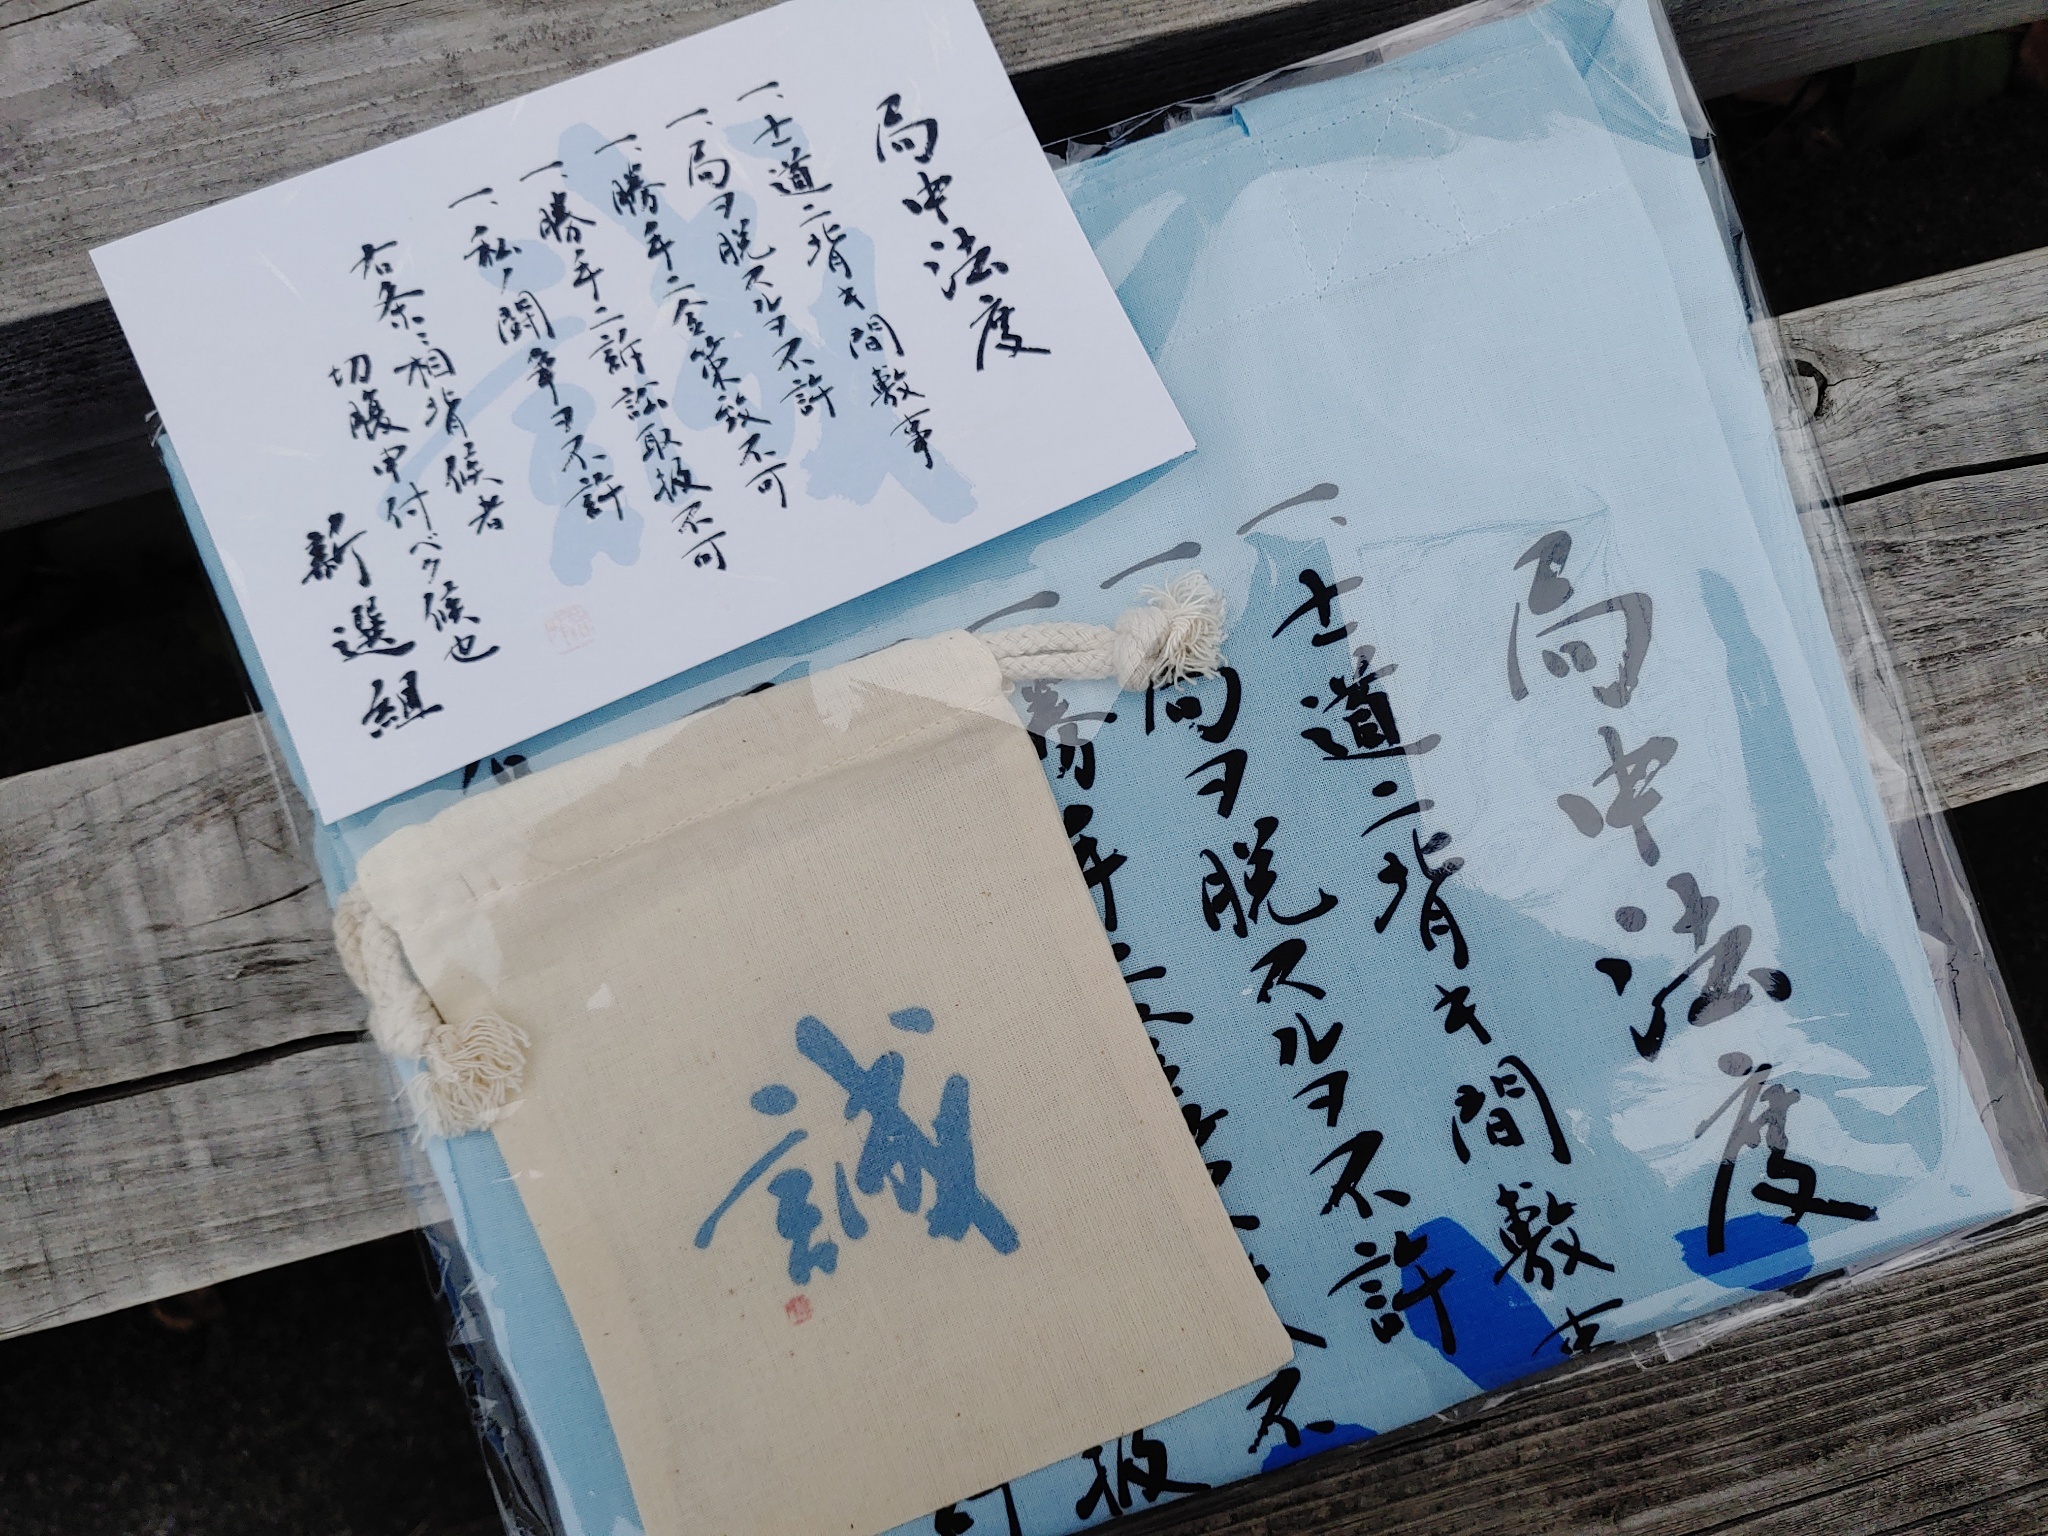 局中法度
一、士道ニ背キ間敷事
一、局ヲ脱スルヲ不許
一、勝手ニ金策致不可
一、勝手ニ訴訟取扱不可
一、私ノ闘争ヲ不許
右条々相背候者
切腹申付ベク候也
新選組
局中法度
一、士道ニ背キ間敷事
一、局ヲ脱スルヲ不許
誠